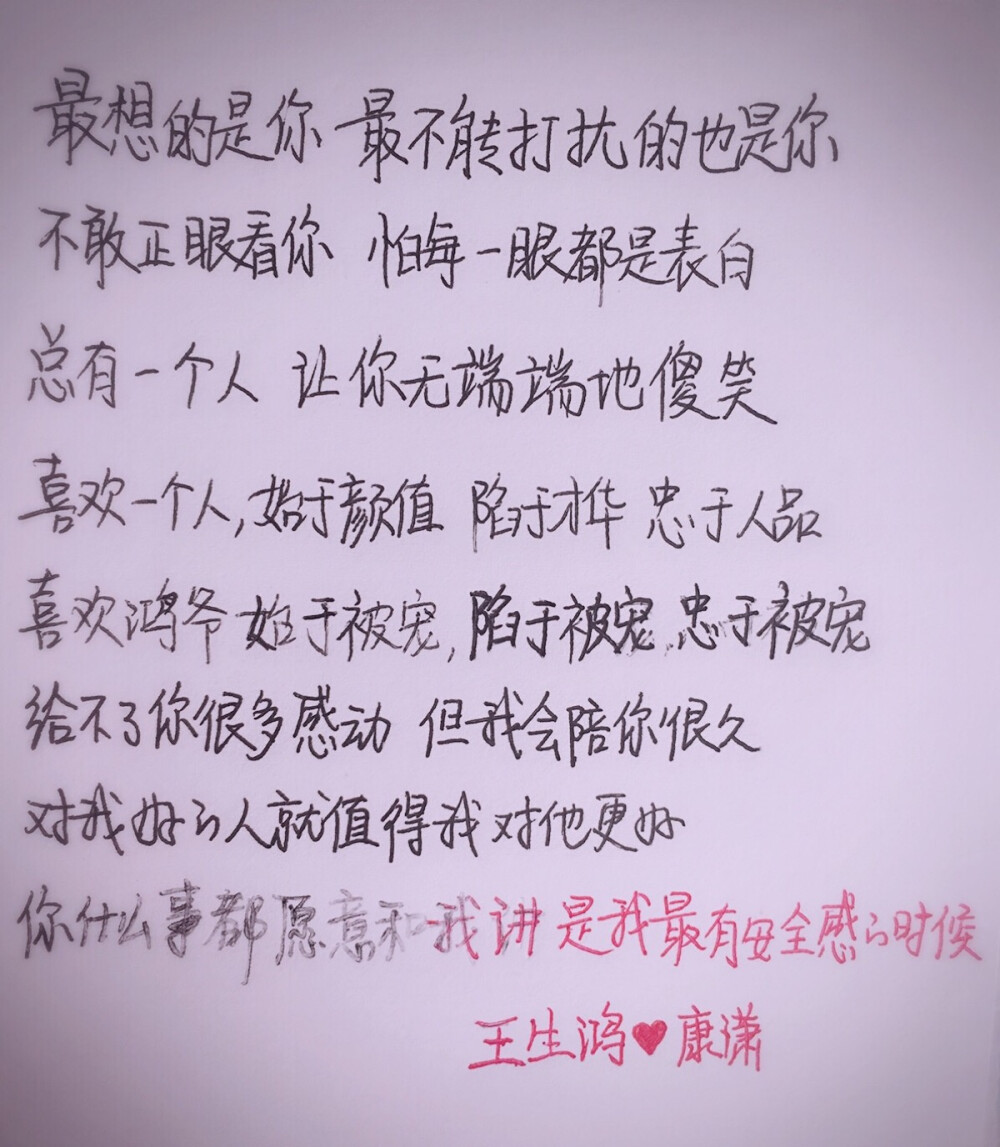 最想的是你 最不能打扰的也是你
不敢正眼看你 怕每一眼都是表白
总有一个人 让你无端端地傻笑
喜欢一个人,始于颜值 陷于才华 忠于人品
喜欢鸿爷 始于被宠,陷于被宠,忠于被宠
给不了你很多感动 但我会陪你很久
对我好的人就值得我对他更好
你什么事都愿意和我讲 是我最有安全感的时候
王生鸿♥康潇